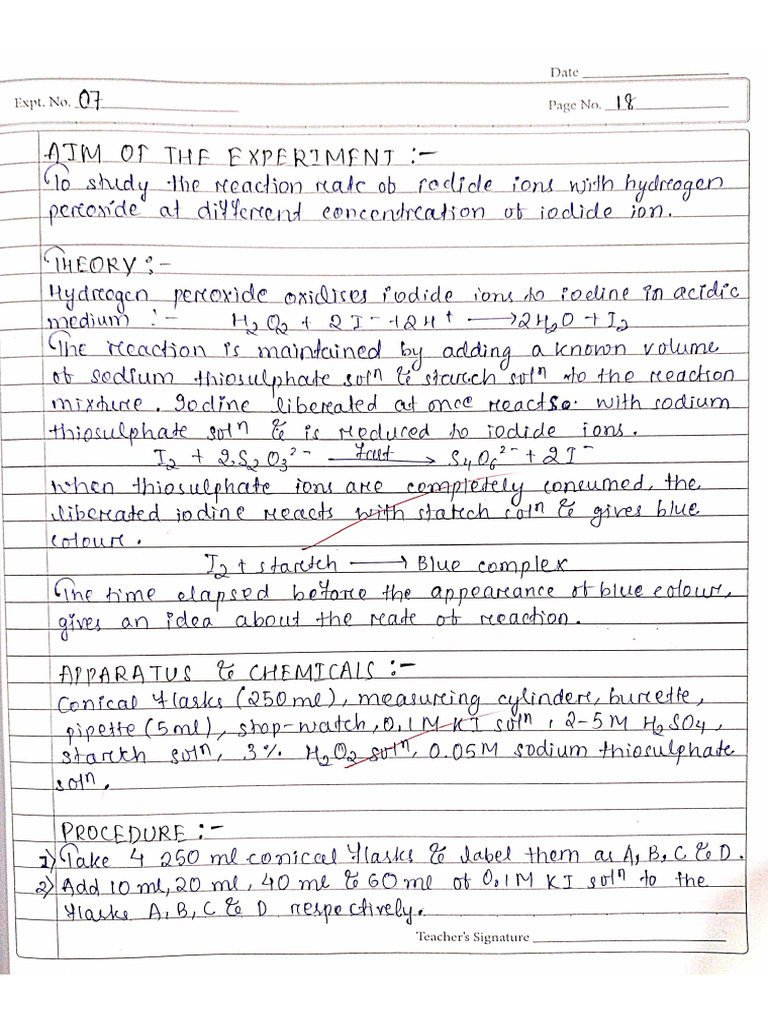 Date
Expt. No. 07
Page No. 18
AIM OF THE EXPERIMENT :-
To study the reaction rate of iodide ions with hydrogen
peroxide at different concentration of iodide ion.
THEORY :-
Hydrogen peroxide oxidises iodide ions to iodine in acidic
medium :- H₂O₂ + 2I⁻ + 2H⁺ ⟶ 2H₂O + I₂
The reaction is maintained by adding a known volume
of sodium thiosulphate solⁿ & starch solⁿ to the reaction
mixture. Iodine liberated at once reacts. with sodium
thiosulphate solⁿ & is reduced to iodide ions.
I₂ + 2S₂O₃²⁻ —Fast→ S₄O₆²⁻ + 2I⁻
when thiosulphate ions are completely consumed, the
liberated iodine reacts with starch solⁿ & gives blue
colour.
I₂ + starch ⟶ Blue complex
The time elapsed before the appearance of blue colour,
gives an idea about the rate of reaction.
APPARATUS & CHEMICALS :-
Conical flasks (250 ml), measuring cylinders, burette,
pipette (5ml), stop-watch, 0.1 M KI solⁿ, 2-5 M H₂SO₄,
starch solⁿ, 3% H₂O₂ solⁿ, 0.05M sodium thiosulphate
solⁿ.
PROCEDURE :-
1) Take 4 250 ml conical flasks & label them as A, B, C & D.
2) Add 10 ml, 20 ml, 40 ml & 60 ml of 0.1M KI solⁿ to the
flasks A, B, C & D respectively.
Teacher's Signature